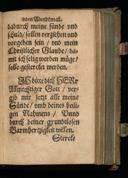 vom Abendmal.
dadurch meine sünde und
schuld/ sollen verziehen und
vergeben sein / und mein
Christlicher Glaube / da
mit ich selig werden müge/
solle gestercket werden.
ICh bitte dich HERR
Allmechtiger Gott / ver
gib mir jetzt alle meine
Sünde/ und deines heili
gen Nahmens / Unnd
durch deiner grundlosen
Barmhertzigkeit willen.
Stercke